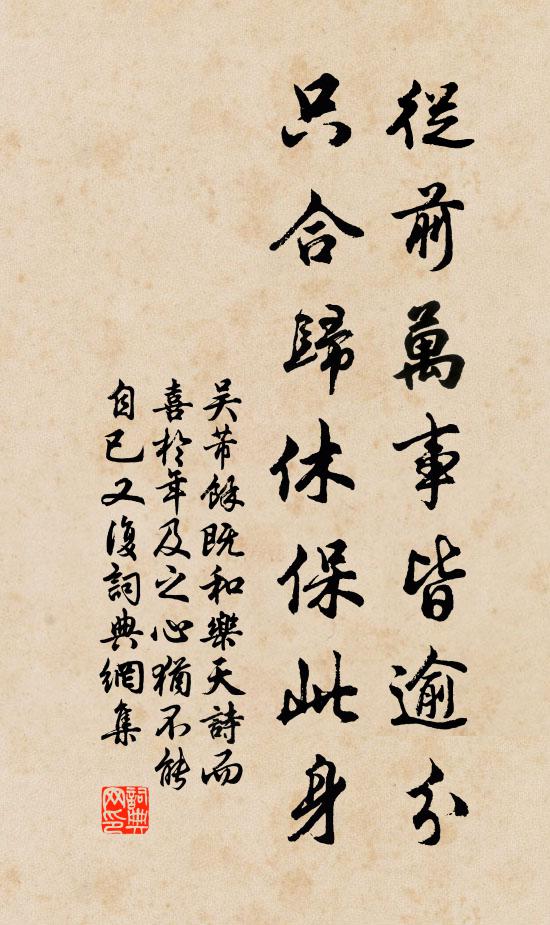 從前萬事皆逾分
只合歸休保此身
吳芾餘既和樂天詩而
喜於年及之心猶不能
自已又復詞典網集
詞典網印